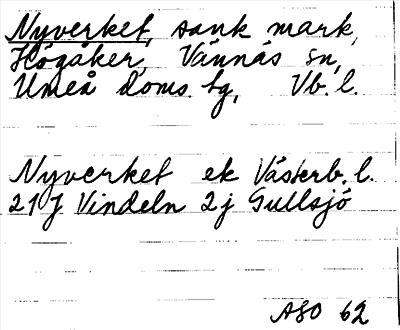 Nyverket, sank mark,
Högåker, Vännäs sn,
Umeå Doms. tg, Vb. l.
Nyverket ek Västerb. l.
21 J Vindeln 2 j Gullsjö
ASO 62